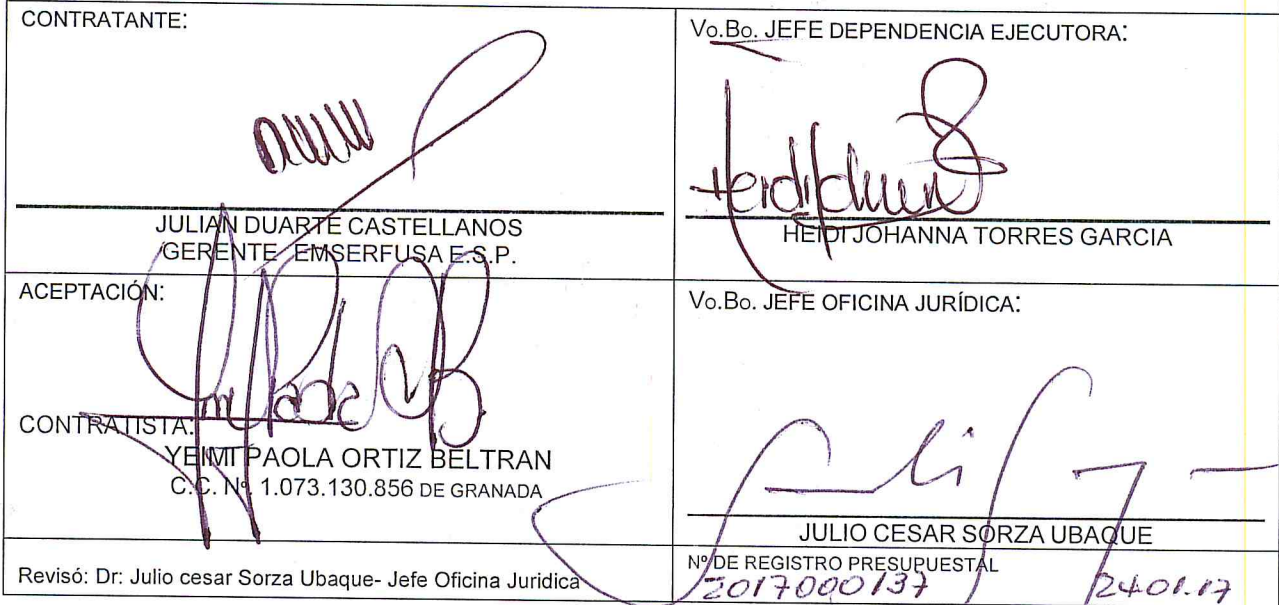 CONTRATANTE:
JULIAN DUARTE CASTELLANOS
GERENTE EMSERFUSA E.S.P.
Vo.Bo. JEFE DEPENDENCIA EJECUTORA:
HEIDI JOHANNA TORRES GARCIA
ACEPTACIÓN:
CONTRATISTA:
YEIMI PAOLA ORTIZ BELTRAN
C.C. Nº. 1.073.130.856 DE GRANADA
Vo.Bo. JEFE OFICINA JURÍDICA:
JULIO CESAR SORZA UBAQUE
Revisó: Dr: Julio cesar Sorza Ubaque- Jefe Oficina Juridica
Nº DE REGISTRO PRESUPUESTAL
2017000137 24.01.17